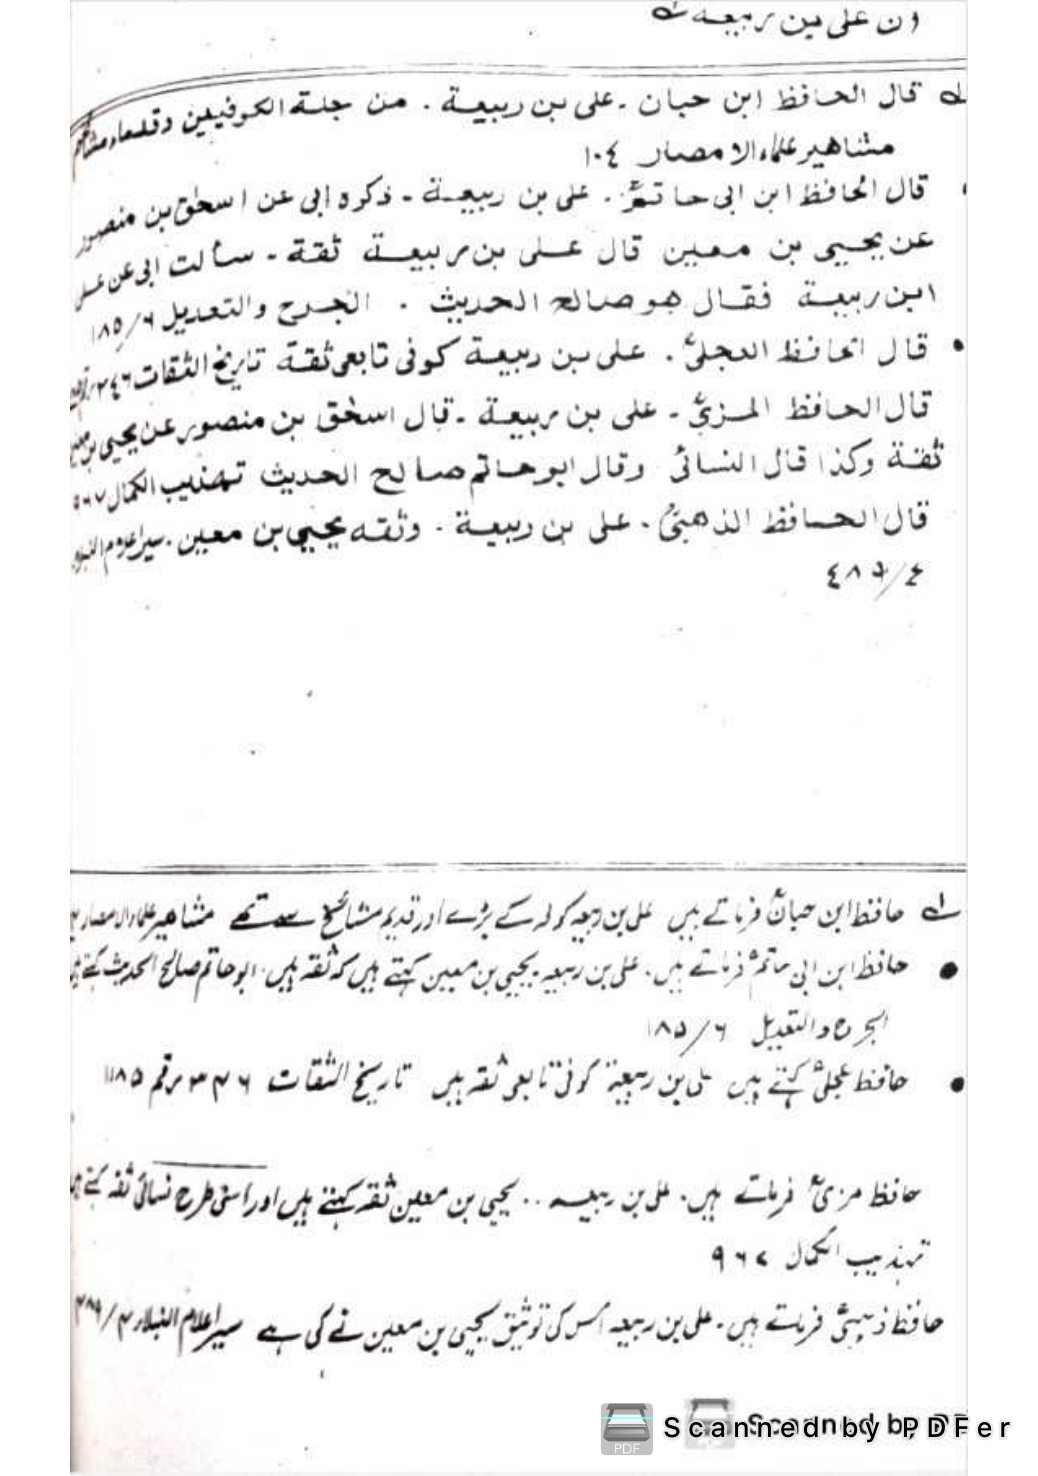 ان علی بن ربیعہ
قال الحافظ ابن حبان . علی بن ربیعة . من جلة الکوفیین وقدماء
مشاهیر علماء الامصار ١٠٤
قال الحافظ ابن ابی حاتمؒ . علی بن ربیعة - ذکره ابی عن اسحٰق بن منصور
عن یحییٰ بن معین قال علی بن ربیعة ثقة - سألت ابی عن
ابن ربیعة فقال هو صالح الحدیث . الجرح والتعدیل ٦/١٨٥
• قال الحافظ العجلیؒ . علی بن ربیعة کوفی تابعی ثقة تاریخ الثقات
قال الحافظ المزیؒ - علی بن ربیعة - قال اسحٰق بن منصور عن یحییٰ بن
ثقة وکذا قال النسائی وقال ابو حاتم صالح الحدیث تهذیب الکمال
قال الحافظ الذهبیؒ . علی بن ربیعة . وثقه یحییٰ بن معین . سیر اعلام
٤/
حافظ ابن حبانؒ فرماتے ہیں علی بن ربیعہ کوفہ کے بڑے اور قدیم مشائخ سے تھے مشاهیر علماء الامصار
• حافظ ابن ابی حاتمؒ فرماتے ہیں . علی بن ربیعہ یحییٰ بن معین کہتے ہیں کہ ثقہ ہیں . ابو حاتم صالح الحدیث کہتے
الجرح والتعدیل ٦/١٨٥
• حافظ عجلیؒ کہتے ہیں علی بن ربیعة کوفی تابعی ثقہ ہیں تاریخ الثقات ٣٤٦ رقم ١١٨٥
حافظ مزیؒ فرماتے ہیں . علی بن ربیعہ .. یحییٰ بن معین ثقہ کہتے ہیں اور اسی طرح نسائی ثقہ کہتے
تہذیب الکمال ٩٦٧
حافظ ذہبیؒ فرماتے ہیں . علی بن ربیعہ اس کی توثیق یحییٰ بن معین نے کی ہے سیر اعلام النبلاء
PDF Scanned by PDFer